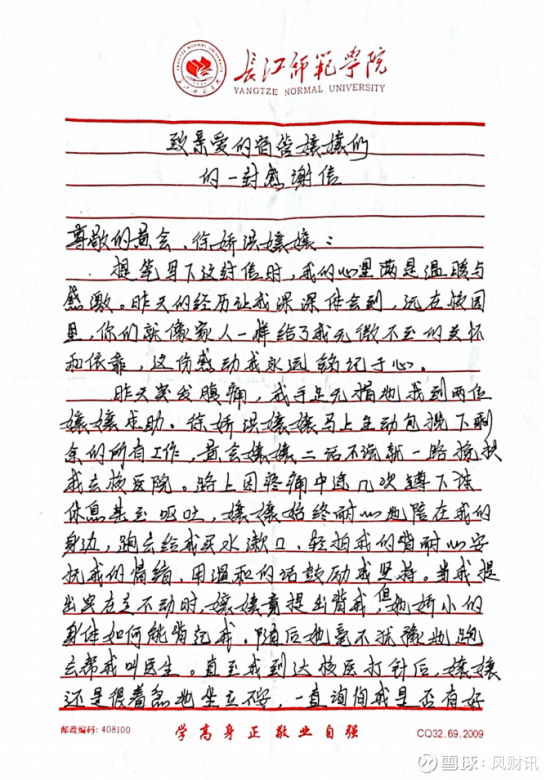 长江师范学院
YANGTZE NORMAL UNIVERSITY
致亲爱的宿管嬢嬢们
的一封感谢信
尊敬的黄会、徐娇淑嬢嬢：
提笔写下这封信时，我的心里满是温暖与
感激。昨天的经历让我深深体会到，远在校园
里，你们就像家人一样给了我无微不至的关怀
和依靠，这份感动我永远铭记于心。
昨天突发腹痛，我手足无措地找到两位
嬢嬢求助。徐娇 嬢嬢马上主动包揽下剩
余的所有工作，黄会嬢嬢二话不说就一路搀扶
我去校医院。路上因疼痛中途几次蹲下谈
休息甚至呕吐，嬢嬢始终耐心地陪在我的
身边，跑去给我买水漱口，轻拍我的背耐心安
抚我的情绪，用温和的话鼓励我坚持。当我提
出实在走不动时，嬢嬢竟提出背我，但她娇小的
身体如何能背起我。随后她毫不犹豫地跑
去帮我叫医生。直至我到达校医打针后，嬢嬢
还是很着急地坐立不安，一直询问我是否有好
邮政编码：408100
学高身正敬业自强
CQ32.69.2009
雪球：风财讯